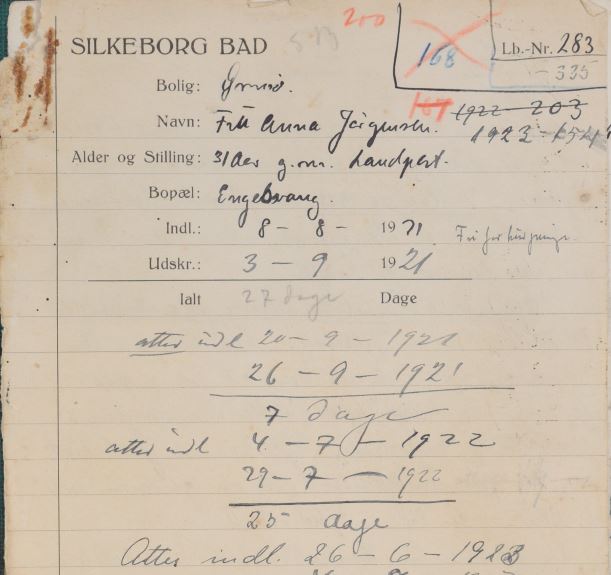 200
SILKEBORG BAD 513
168
Lb.-Nr. 283
335
Bolig: Ørnsø.
167 1922 - 203
Navn: Frk Anna Jørgensen. 1923 - 154
Alder og Stilling: 31 Aar g.m. Landpost.
Bopæl: Engesvang.
Indl.: 8 - 8 - 1921 Fri for
Udskr.: 3 - 9 1921
Ialt 27 dage Dage
atter indl 20 - 9 - 1921
26 - 9 - 1921
7 dage
atter indl 4 - 7 - 1922
29 - 7 - 1922
25 dage
Atter indl. 26 - 6 - 1923